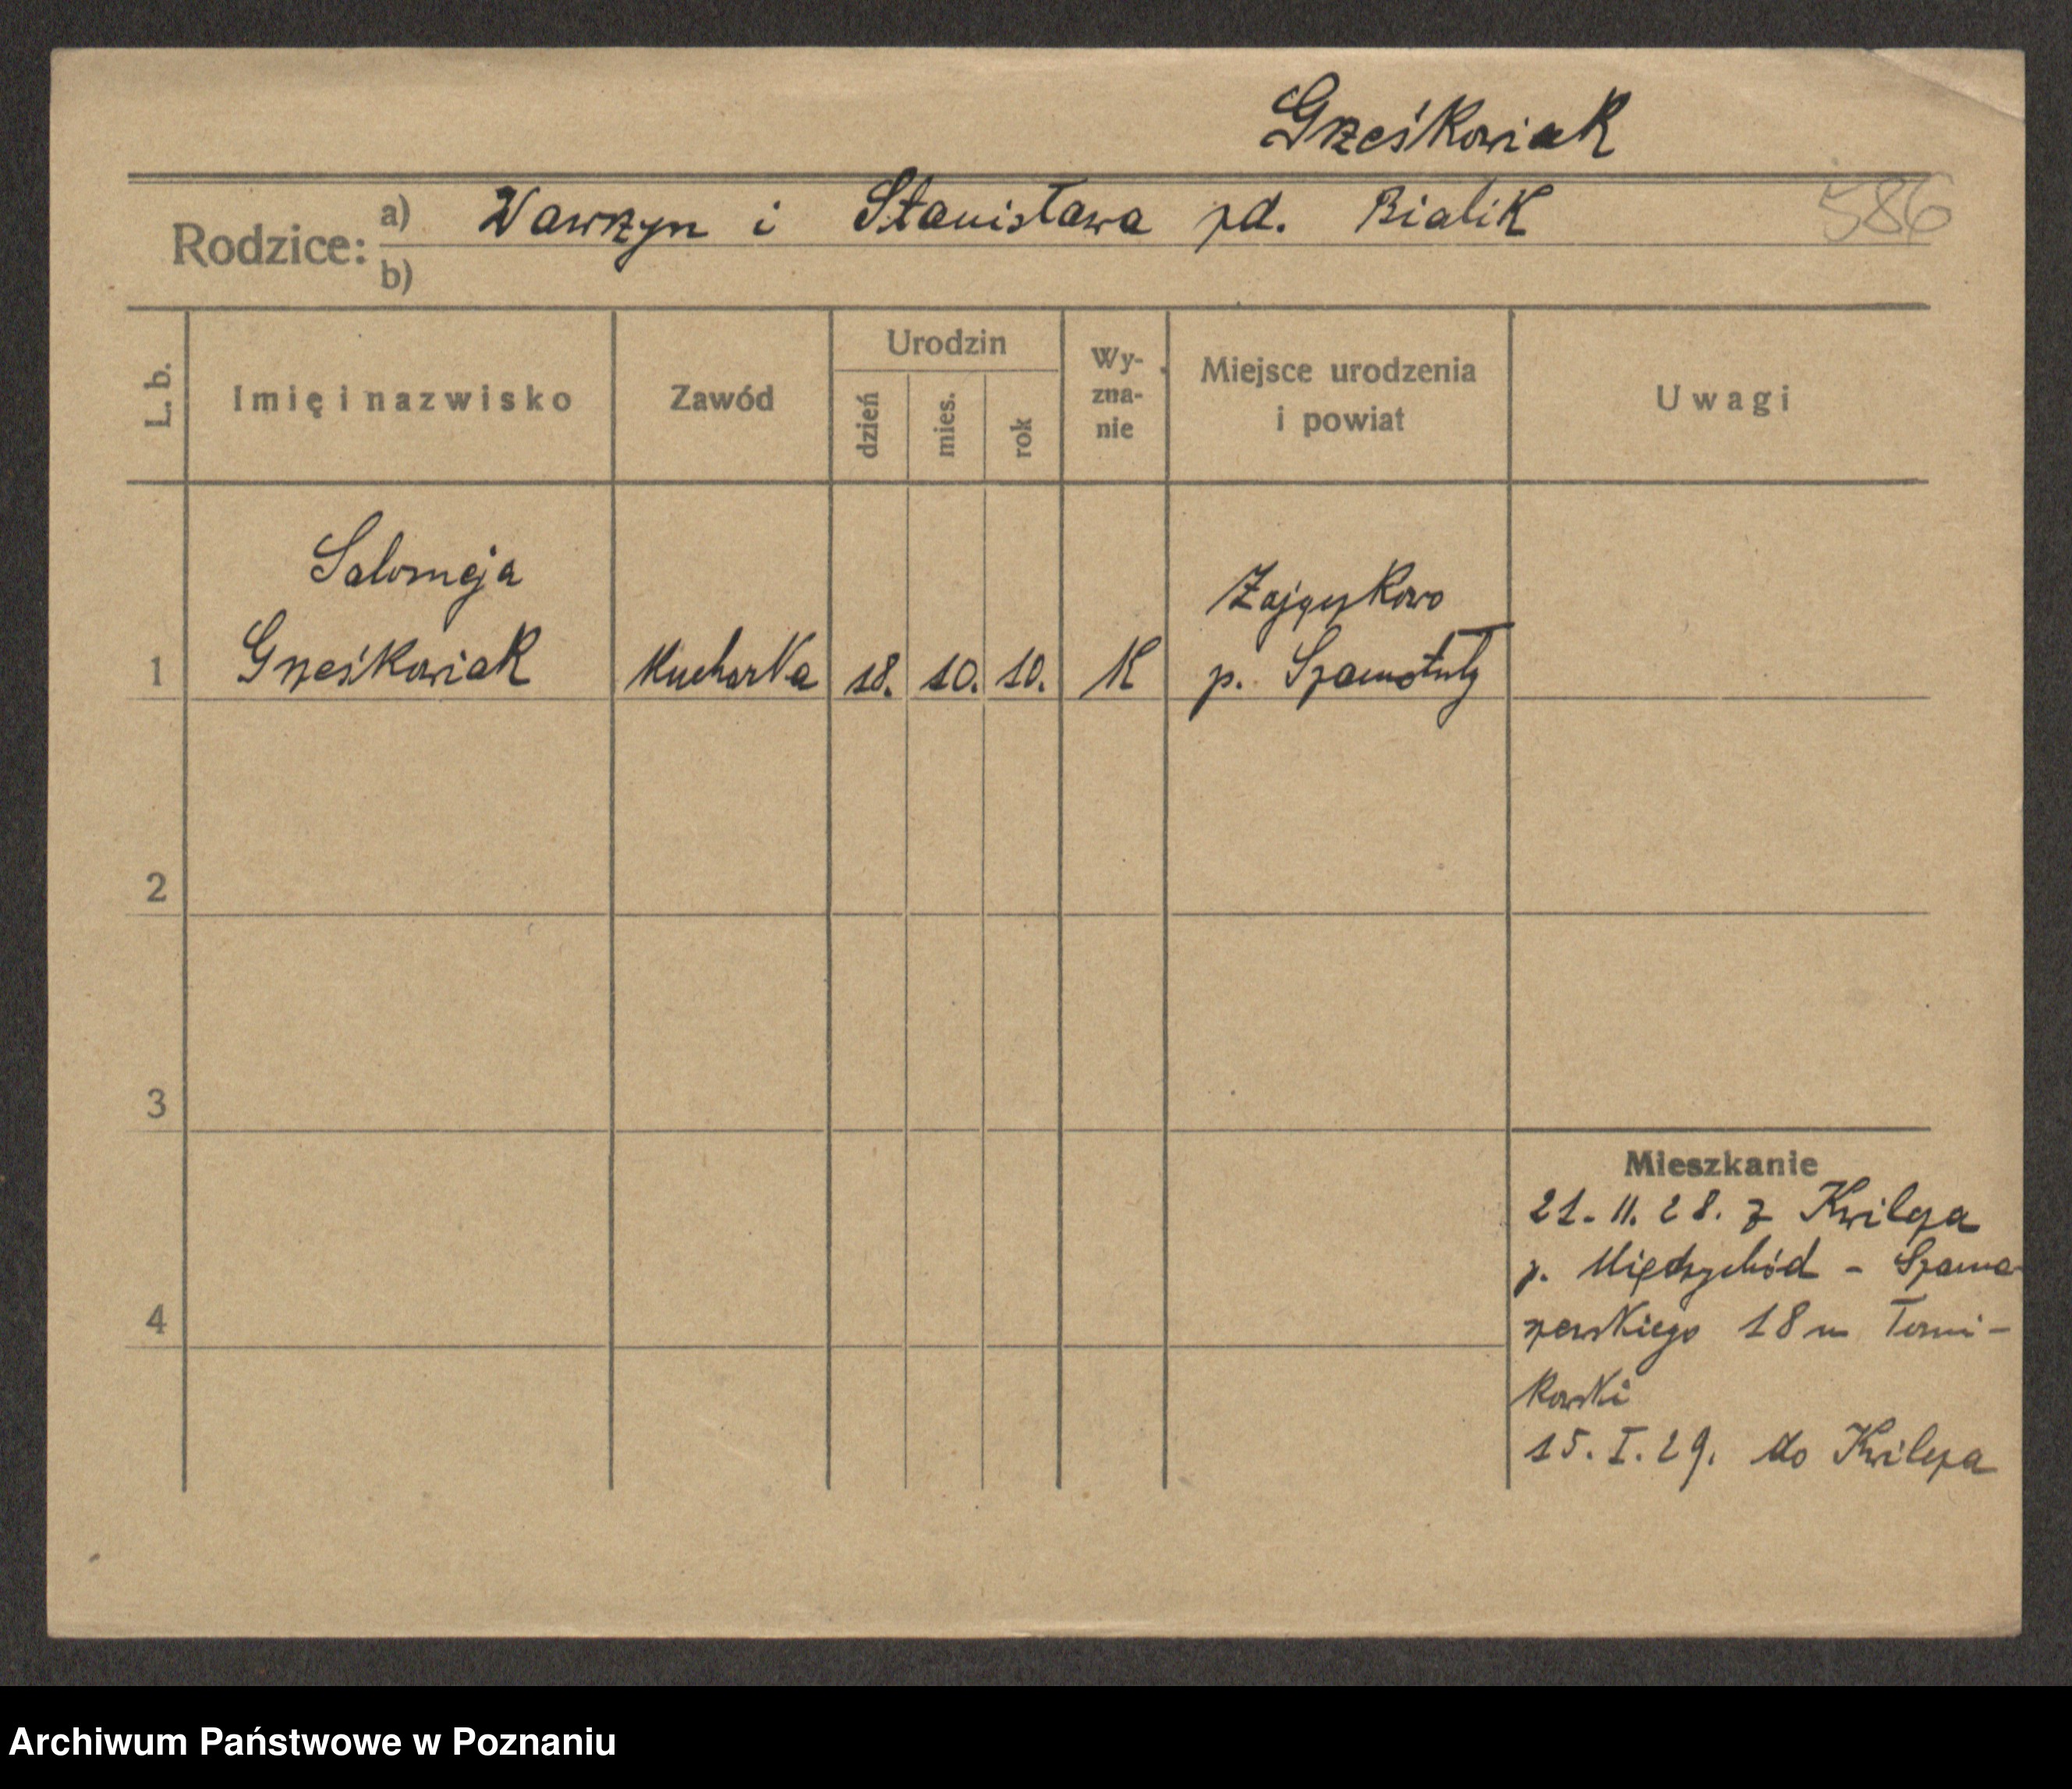 Grześkowiak
586
Rodzice: a) Wawrzyn i Stanisława zd. Bialik
b)
L. b.
Imię i nazwisko
Zawód
Urodzin
dzień
mies.
rok
Wy-
zna-
nie
Miejsce urodzenia
i powiat
Uwagi
Salomeja
Grześkowiak
1
Kucharka
18. 10. 10.
K
Zajączkowo
p. Szamotuły
2
3
4
Mieszkanie
21. 11. 28. z Kwilcza
p. Międzychód - Szama-
rzewskiego 18 u Tomi-
kowski
15. I. 29. do Kwilcza
Archiwum Państwowe w Poznaniu